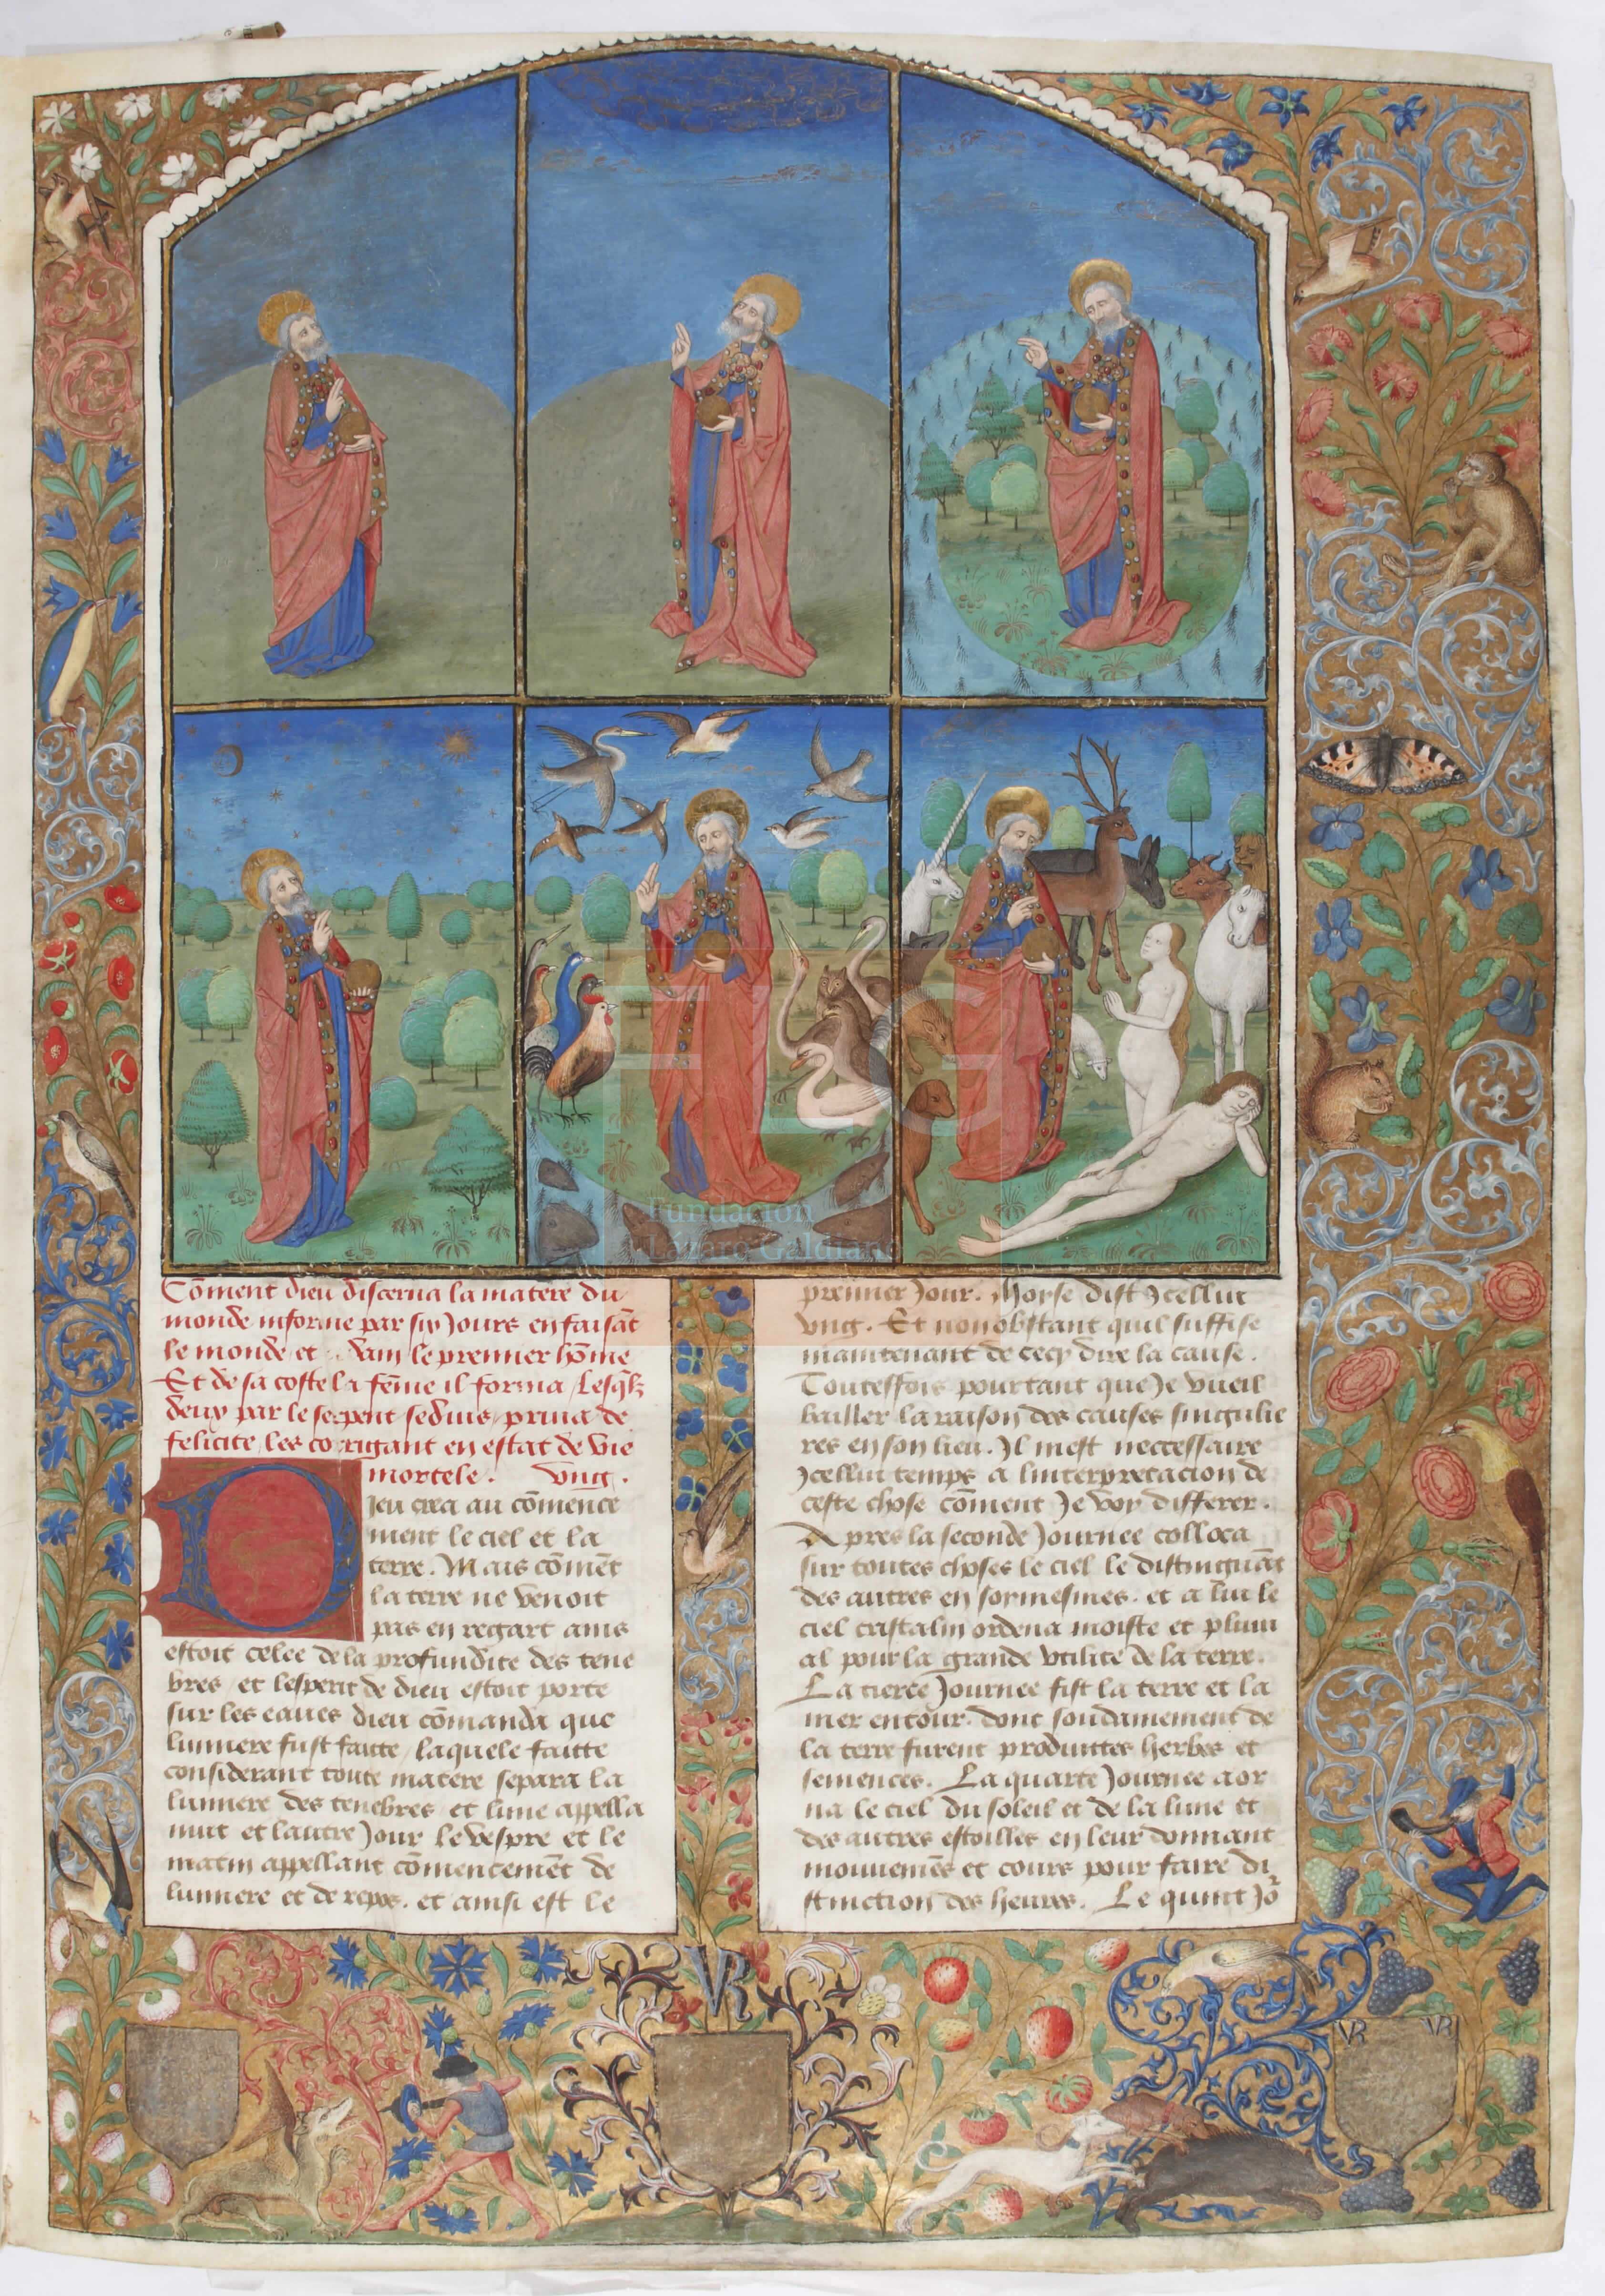 3
Co͂ment dieu discerna la matere du
monde informe par six Jours en faisãt
le monde et Adam le premier ho͂me
Et de sa coste la fe͂me il forma / Lesq̃lz
deux par le serpent seduis / priua de
felicite / les corrigant en estat de vie
mortele . Vng .
Dieu crea au co͂mence
ment le ciel et la
terre . Mais co͂mẽt
la terre ne venoit
pas en regart ains
estoit celee de la profundite des tene
bres / et lesperit de dieu estoit porte
sur les eaues dieu co͂manda que
lumiere fust faitte / laquele faitte
considerant toute matere separa la
lumiere des tenebres et lune appella
nuit et lautre Jour le vespre et le
matin appellant co͂mencemẽt de
lumiere et de repos . et ainsi est le
premier Jour . Moyse dist Jcellui
vng . Et nonobstant quil suffise
maintenant de cecy dire la cause .
Touteffois pourtant que Je vueil
bailler la raison des causes singulie
res en son lieu . Jl mest neccessaire
Jcellui temps a linterpretacion de
ceste chose co͂ment Je voy differer .
Apres la seconde Journee colloca
sur toutes choses le ciel le distinguãt
des autres en soymesmes . et a lui le
ciel cristalin ordena moiste et pluui
al pour la grande vtilite de la terre .
La tierce Journee fist la terre et la
mer entour . dont soudainement de
la terre furent produittes herbes et
semences . La quarte Journee aor
na le ciel du soleil et de la lune et
des autres estoilles en leur donnant
mouuemẽs et cours pour faire di
stinction des heures . Le quint Jo᷑
VR
VR VR
FLG
Fundación
Lázaro Galdiano